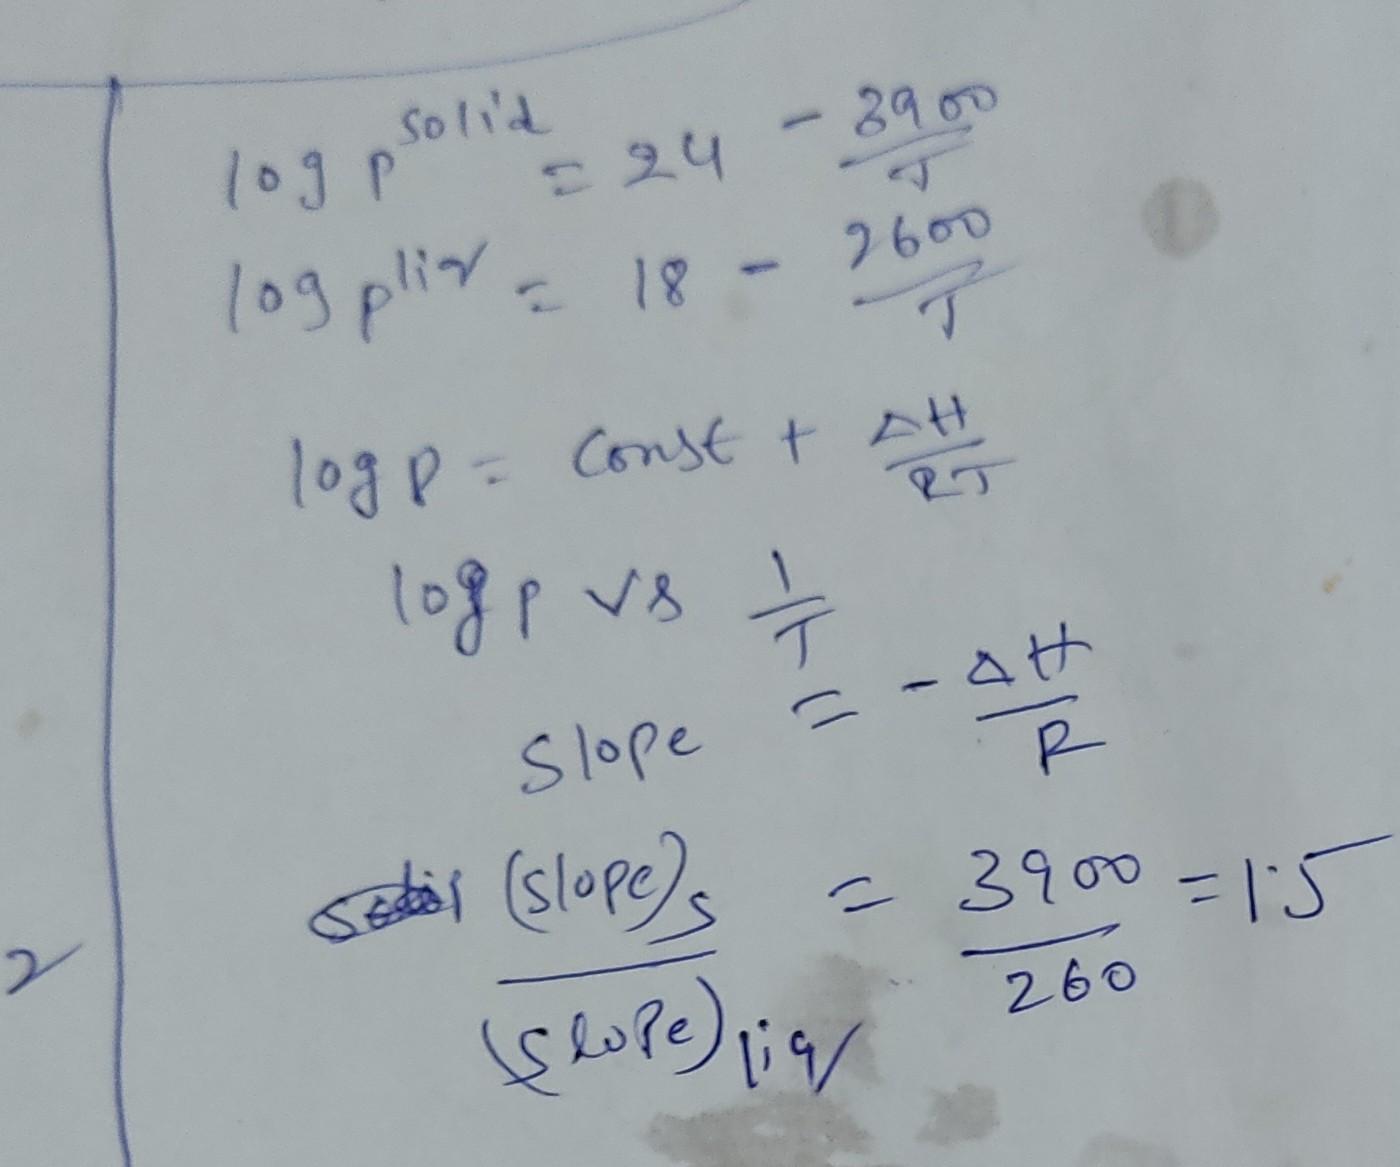 log p^solid = 24 - 3900/T
log p^liq = 18 - 2600/T
log p = const + ΔH/RT
log p vs 1/T
slope = - ΔH/R
(slope)s/(slope)liq = 3900/260 = 1.5
2